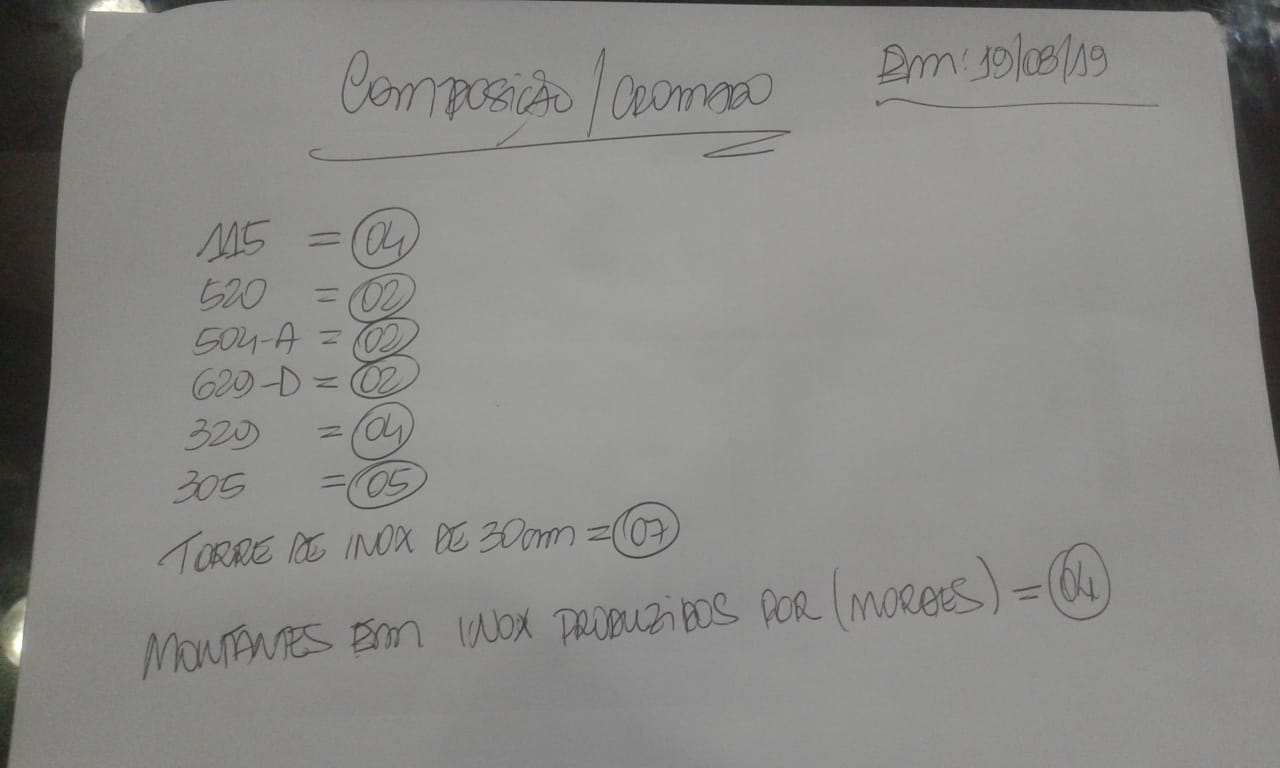 Composição / CROMADO
Em: 19/08/19
115 = 04
520 = 02
504-A = 02
629-D = 02
329 = 04
305 = 05
TORRE DE INOX DE 30cm = 07
MONTANTES Em INOX PRODUZIDOS POR (MORAES) = 04